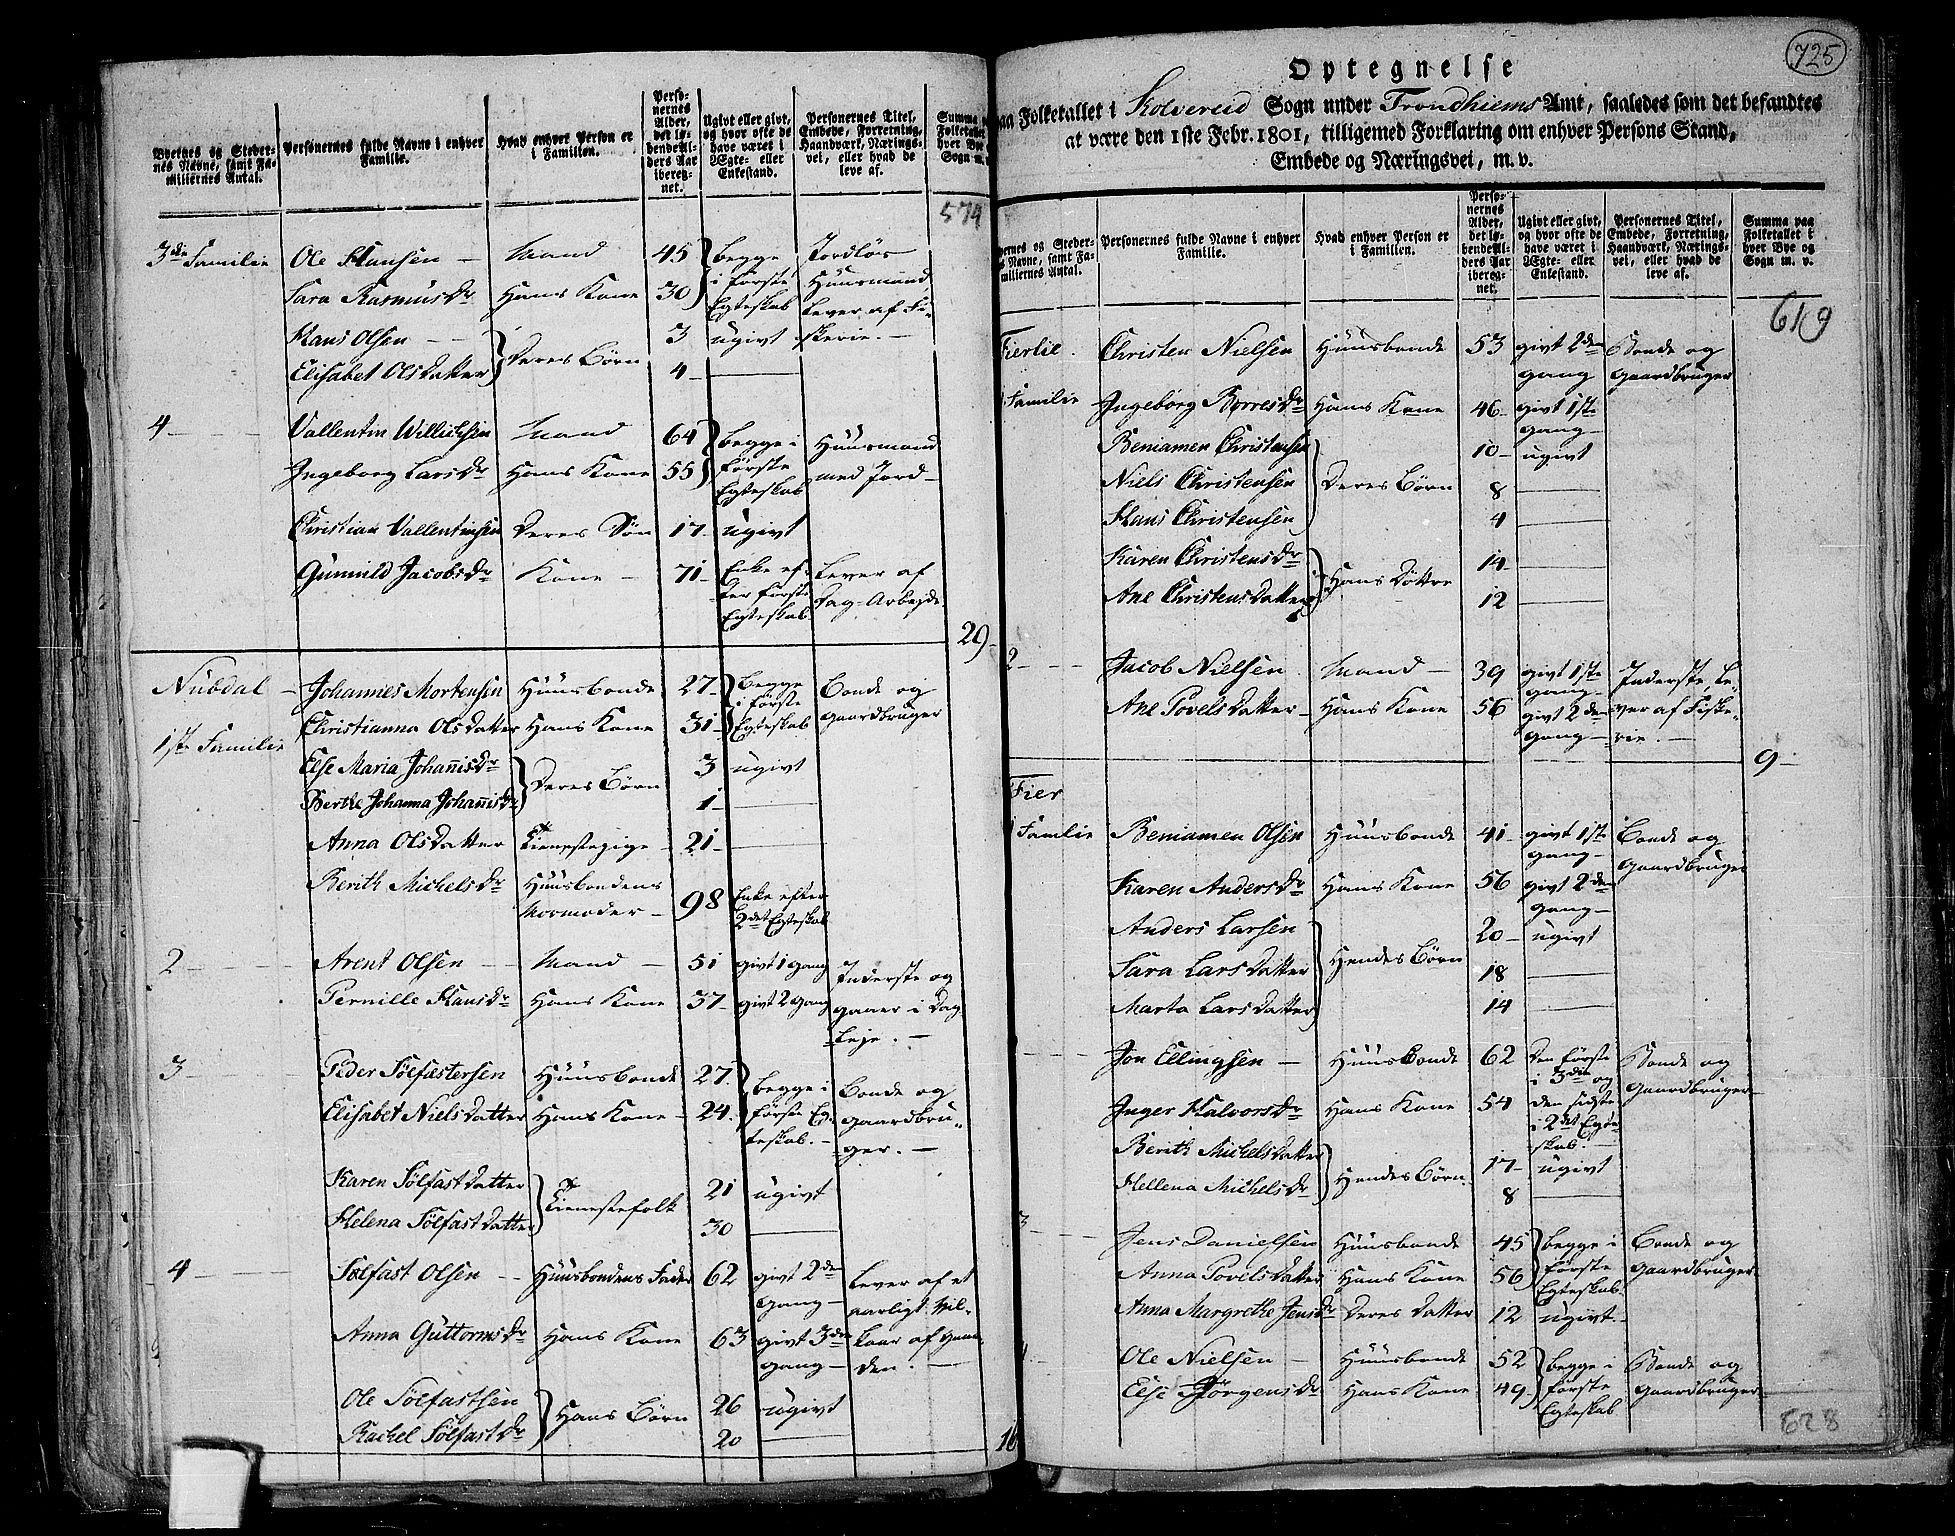 Byernes og Steder-
nes Navne, samt Fa-
miliernes Antal.
Personernes fulde Navne i enhver
Familie.
Hvad enhver Person er
i Familien.
Perso-
nernes
Alder,
det lø-
bende Al-
ders Aar
ibereg-
net.
Ugivt eller givt,
og hvor ofte de
have været i
Ægte- eller
Enkestand.
Personernes Titel,
Embede, Forretning,
Haandværk, Nærings-
vei, eller hvad de
leve af.
Summa
Folketallet
hver Bye
Sogn m.
574
3die Familie Ole Hansen — Mand 45 begge Jordløs
Sara Rasmusdr Hans Kone 30 i første Huusmand,
Egteskab lever af Fi-
Hans Olsen — — 3 ugivt skerie. —
Elisabet Olsdatter Deres Børn 4 —
4 — Vallentin Willichsen Mand 64 begge i Huusmand
Ingeborg Larsdr Hans Kone 55 første med Jord —
Egteskab
Christian Vallentinsen Deres Søn 17 ugivt
Gunnild Jacobsdr Kone — 71 Enke ef- Lever af
ter første Dag-Arbejde
Egteskab
29
Nubdal — Johannes Mortensen Huusbonde 27 begge Bonde og
i første
Christianna Olsdatter Hans Kone 31 Egteskab gaardbruger
1ste Familie
Else Maria Johannisdr 3 ugivt
Deres Børn
Berthe Johanna Johannisdr 1 —
Anna Olsdatter Tienestepige 21 —
Berith Michelsdr Huusbondens
Mormoder — 98 Enke efter
2det Egteskab
2 — Arent Olsen — Mand — 51 givt 1 gang Inderste og
Pernille Hansdr Hans Kone 57 givt 2 gang gaaer i Dag
Leje. —
3 — Peder Sølfæstersen Huusbonde 27 begge i Bonde og
Elisabet Nielsdatter Hans Kone — 24 første Eg- gaardbru-
teskab. — ger. —
Karen Sølfastdatter 21 ugivt
Tienestefolk
Helena Sølfastdatter 30 —
4 — Sølfast Olsen — Huusbondens Fader 62 givt 2den Lever af et
gang — aarligt Vil-
Anna Guttormsdr Hans Kone 63 givt 3die kaar af gaar-
gang — den. —
Ole Sølfastsen 26 ugivt
Hans Børn
Rachel Sølfastdr 20 —
16
725
Optegnelse
paa Folketallet i Kolvereid Sogn under Trondhiems Amt, saaledes som det befandtes
at være den 1ste Febr. 1801, tilligemed Forklaring om enhver Persons Stand,
Embede og Næringsvei, m. v.
ernes og Steder-
s Navne, samt Fa-
miliernes Antal.
Personernes fulde Navne i enhver
Familie.
Hvad enhver Person er
i Familien.
Perso-
nernes
Alder,
det lø-
bende Al-
ders Aar
ibereg-
net.
Ugivt eller givt,
og hvor ofte de
have været i
Ægte- eller
Enkestand.
Personernes Titel,
Embede, Forretning,
Haandværk, Nærings-
vei, eller hvad de
leve af.
Summa paa
Folketallet i
hver Bye og
Sogn m. v.
619
Fierlie. Christen Nielsen Huusbonde 53 givt 2den Bonde og
gang gaardbruger
Familie Ingeborg Børresdr Hans Kone 46 givt 1ste
gang —
Beniamen Christensen 10 ugivt
Niels Christensen Deres Børn 8 —
Hans Christensen 4 —
Karen Christensdr 14 —
Hans Døttre
Ane Christensdatter 12 —
2 — Jacob Nielsen Mand — 39 givt 1ste Inderste, le-
gang —
Ane Povelsdatter — Hans Kone 56 givt 2den ver af Fiske-
gang — rie. —
9 —
Fier
Familie Beniamen Olsen Huusbonde 41 givt 1ste Bonde og
gang — gaardbruger
Karen Andersdr Hans Kone 56 givt 2den
gang —
Anders Larsen 20 ugivt
Sara Larsdatter Hendes Børn 18 —
Marta Larsdatter 14 —
Jon Ellingsen — Huusbonde 62 den første Bonde og
i 3die og gaardbruger
Inger Halvorsdr Hans Kone 54 den sidste
i 2det Egte-
skab
Berith Michelsdatter 17 ugivt
Hendes Børn
Hellena Michelsdr 8 —
3 Jens Danielsen Huusbonde 45 begge i Bonde og
Anna Povelsdatter Hans Kone 56 første gaardbruger
Egteskab
Anna Margrethe Jensdr Deres Datter 12 ugivt. —
Ole Nielsen — Huusbonde 52 begge i Bonde og
Else Jørgensdr Hans Kone 49 første gaardbruger
Egteskab
628